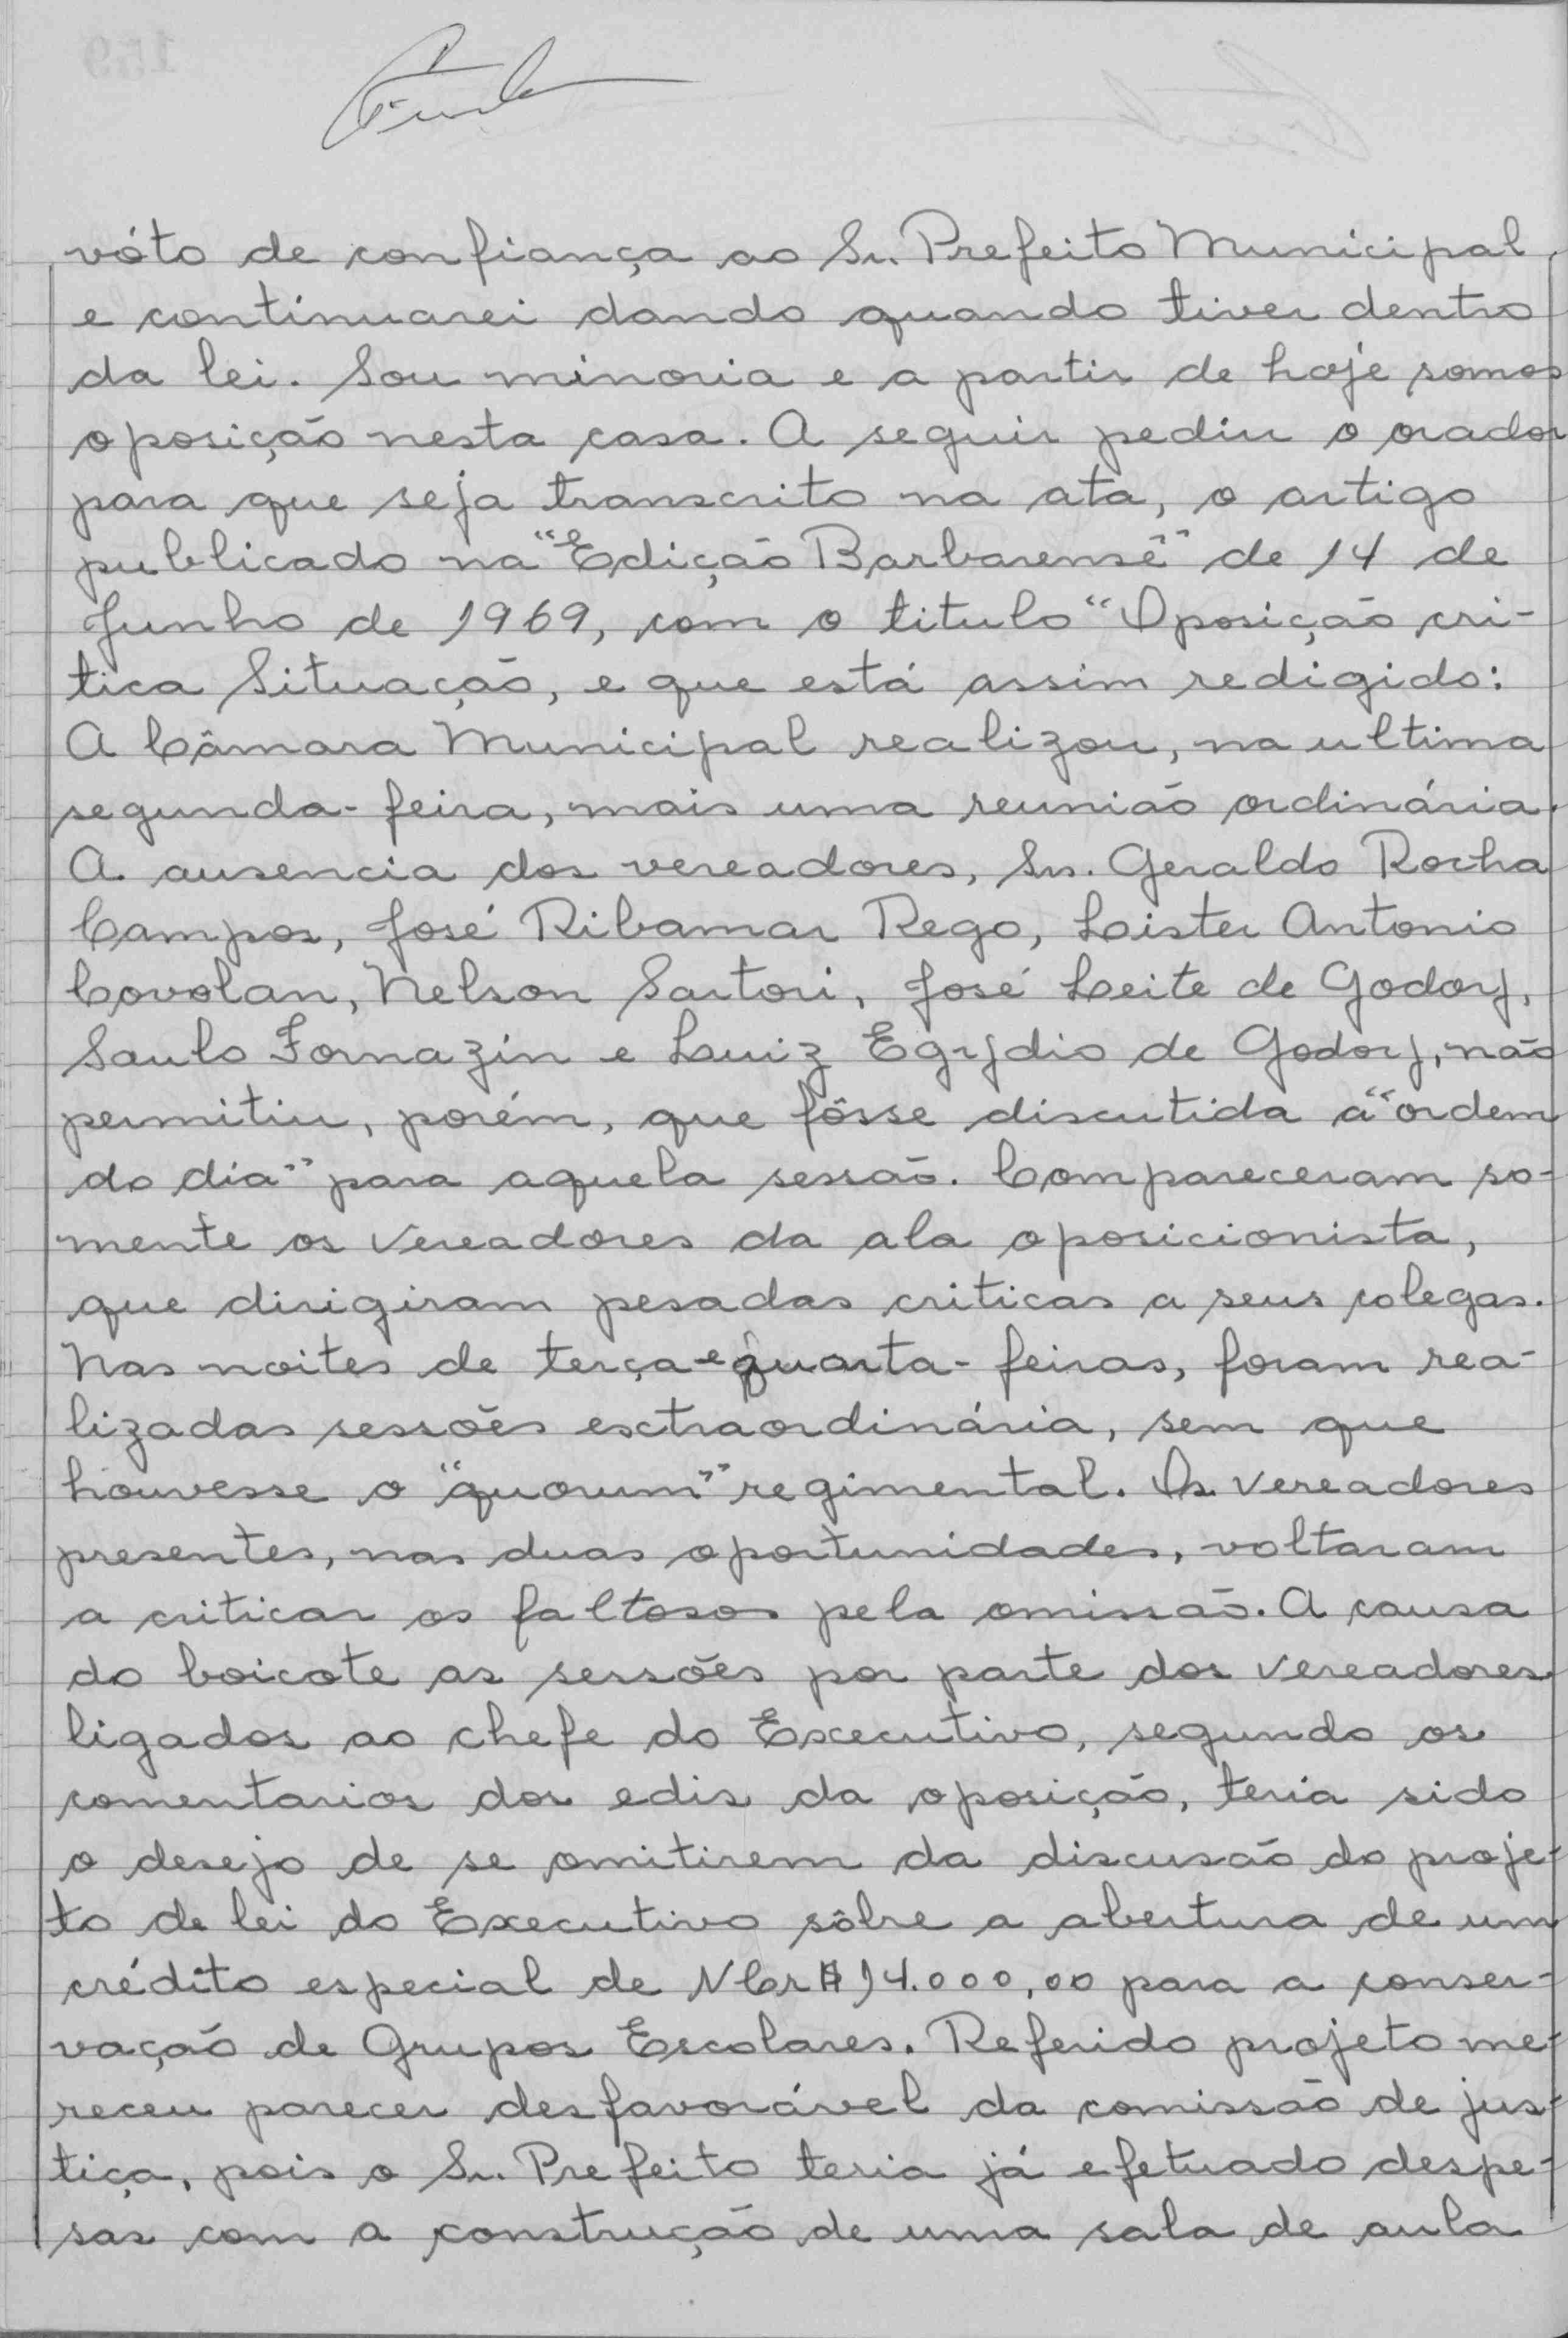 vóto de confiança ao Sr. Prefeito Municipal,
e continuarei dando quando tiver dentro
da lei. Sou minoria e a partir de hoje somos
oposição nesta casa. A seguir pediu o orador
para que seja transcrito na ata, o artigo
publicado na "Edição Barbarense" de 14 de
Junho de 1969, com o titulo "Oposição cri-
tica Situação, e que está assim redigido:
A Câmara Municipal realizou, na ultima
segunda-feira, mais uma reunião ordinária.
A ausencia dos vereadores, Srs. Geraldo Rocha
Campos, José Ribamar Rego, Lister Antonio
Covolan, Nelson Sartori, José Leite de Godoy,
Saulo Fornazin e Luiz Egydio de Godoy, não
permitiu, porém, que fôsse discutida a "ordem
do dia" para aquela sessão. Compareceram so-
mente os Vereadores da ala oposicionista,
que dirigiram pesadas criticas a seus colegas.
Nas noites de terça e quarta-feiras, foram rea-
lizadas sessões extraordinária, sem que
houvesse o "quorum" regimental. Os Vereadores
presentes, nas duas oportunidades, voltaram
a criticar os faltosos pela omissão. A causa
do boicote as sessões por parte dos Vereadores
ligados ao chefe do Executivo, segundo os
comentarios dos edis da oposição, teria sido
o desejo de se omitirem da discusão do proje-
to de lei do Executivo sôbre a abertura de um
crédito especial de NCr$ 14.000,00 para a conser-
vação de Grupos Escolares. Referido projeto me-
receu parecer desfavorável da comissão de jus-
tiça, pois o Sr. Prefeito teria já efetuado despe-
sas com a construção de uma sala de aula